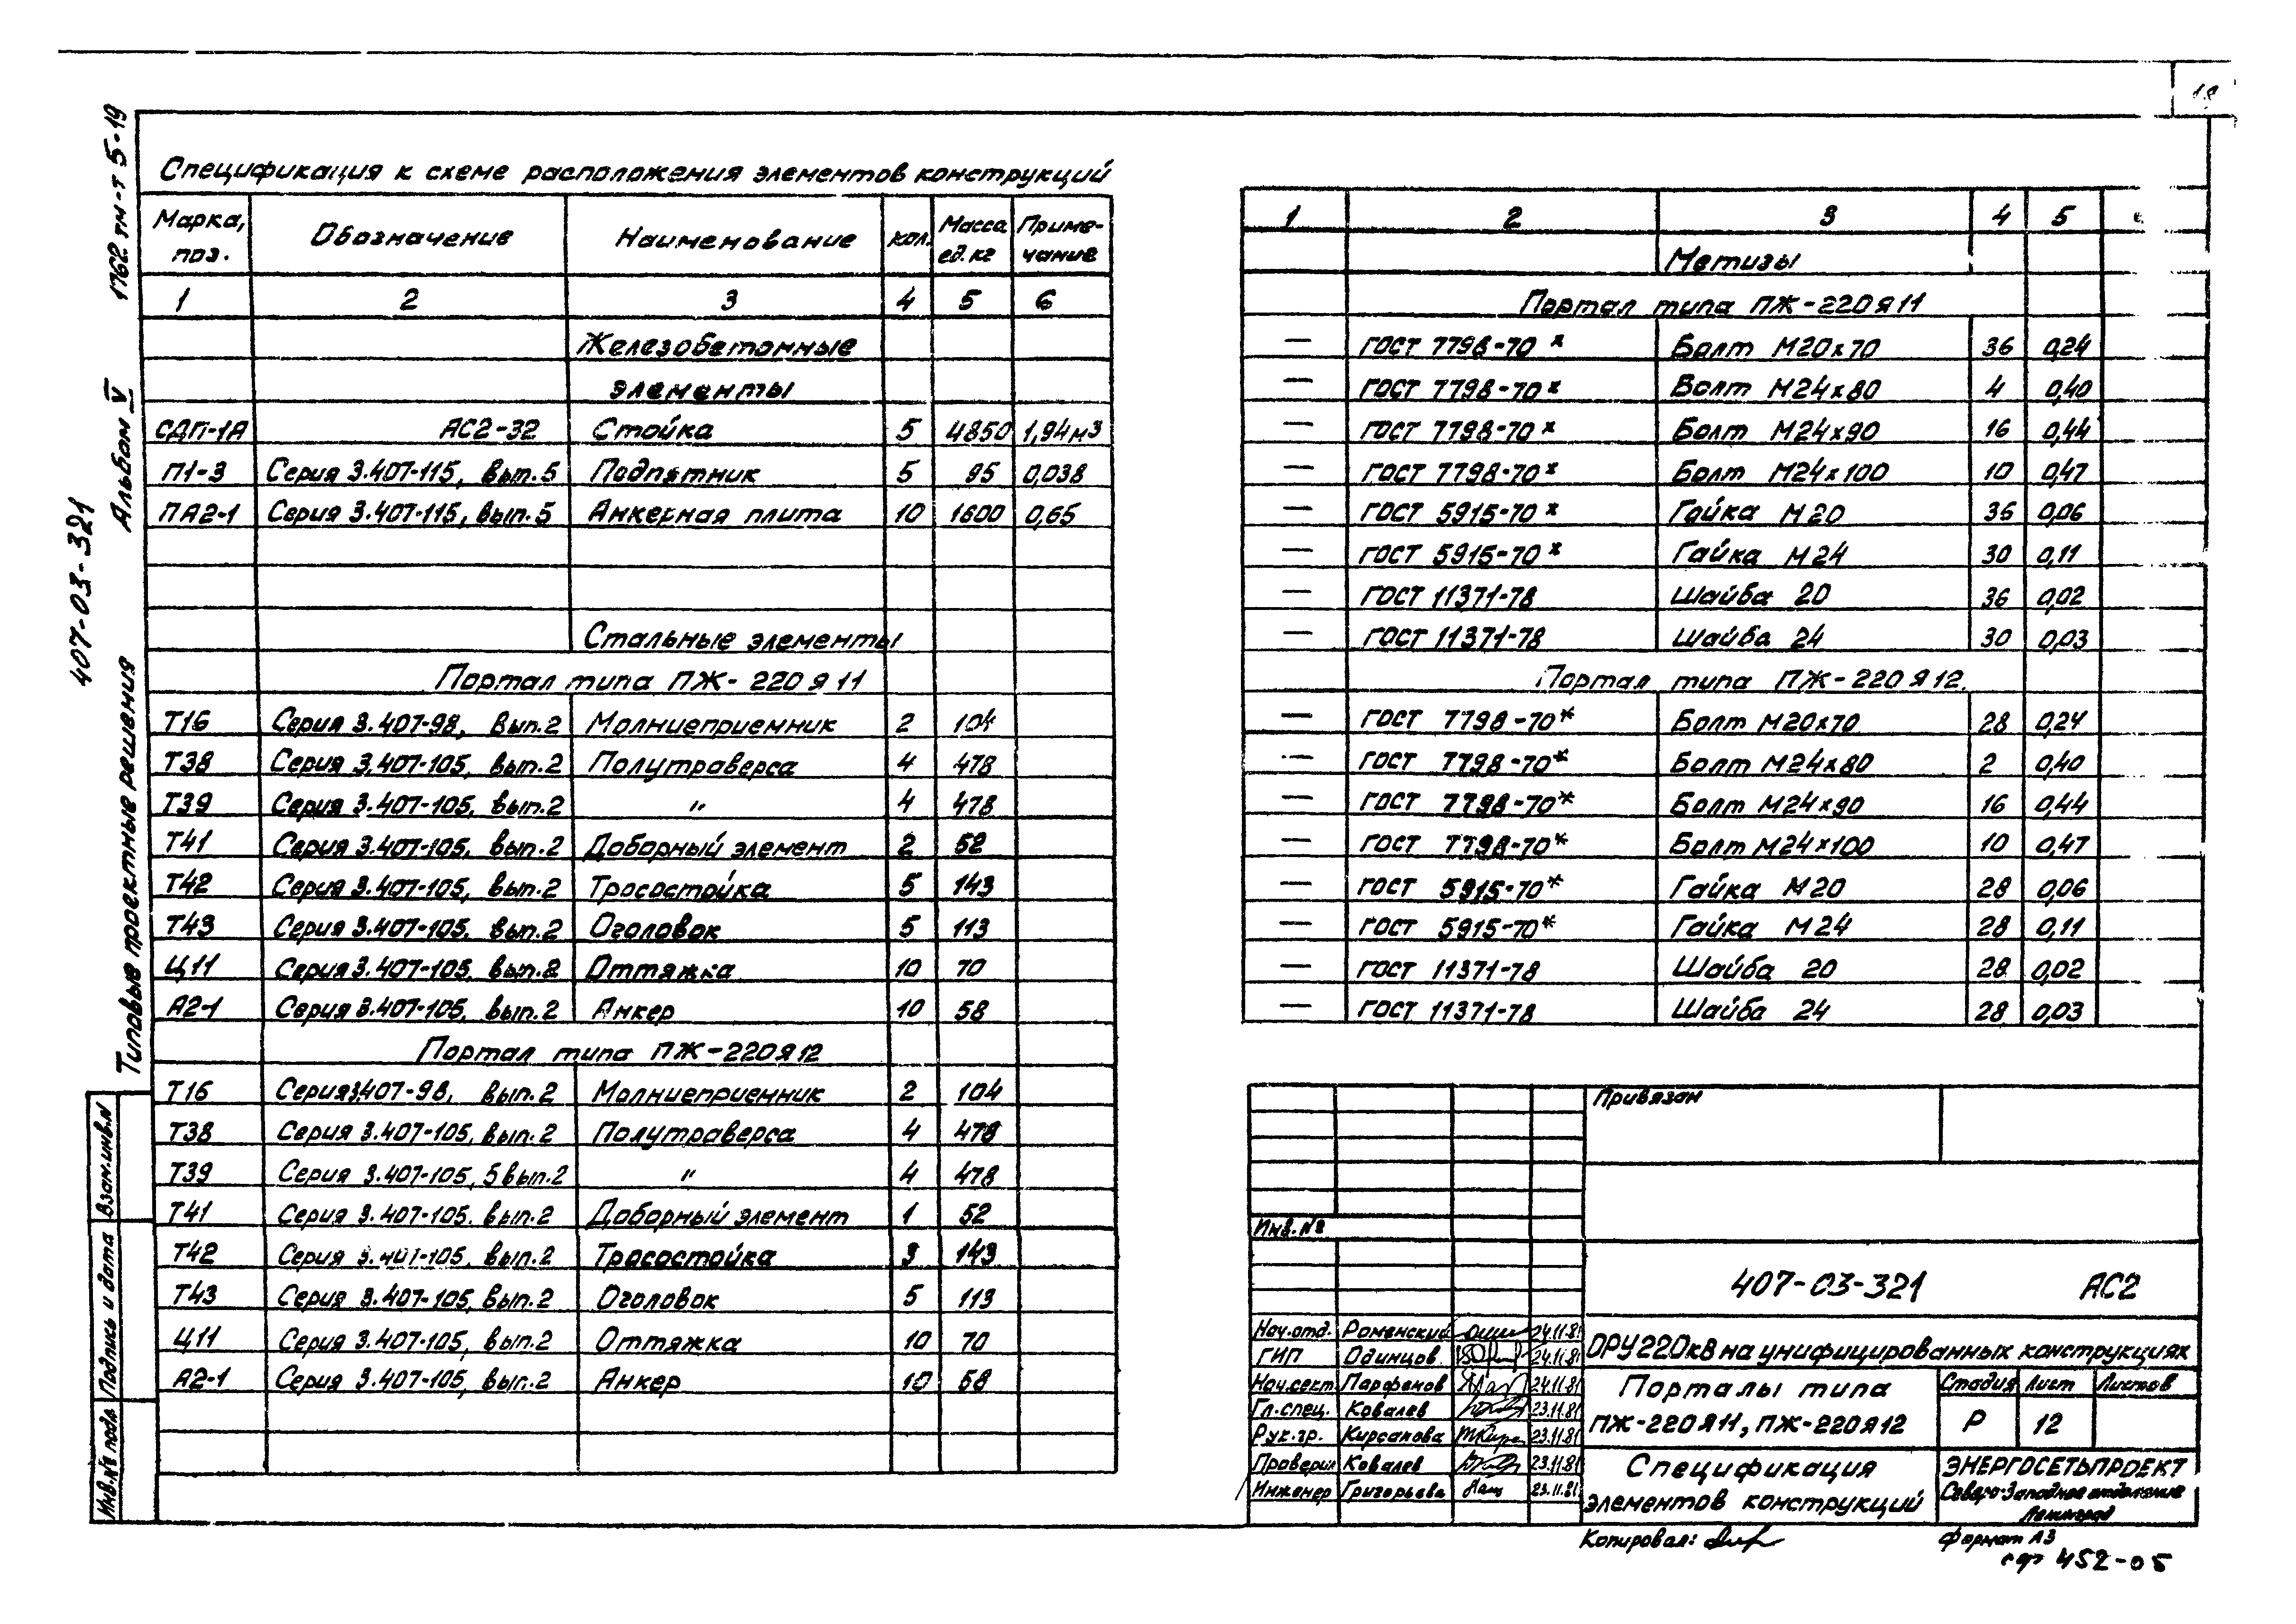 18
1762 тм-т 5-19
Альбом V
407-03-321
Типовые проектные решения
Взам.инв.N
Подпись и дата
Инв.№ подл
Спецификация к схеме расположения элементов конструкций
Марка, поз. Обозначение Наименование кол. Масса ед.кг Примечание
1 2 3 4 5 6
Железобетонные
элементы
СДП-1А АС2-32 Стойка 5 4850 1,94м3
П1-3 Серия 3.407-115, вып.5 Подпятник 5 95 0,038
ПА2-1 Серия 3.407-115, вып.5 Анкерная плита 10 1600 0,65
Стальные элементы
Портал типа ПЖ-220Я11
Т16 Серия 3.407-98, вып.2 Молниеприемник 2 104
Т38 Серия 3.407-105, вып.2 Полутраверса 4 478
Т39 Серия 3.407-105, вып.2 " 4 478
Т41 Серия 3.407-105, вып.2 Доборный элемент 2 52
Т42 Серия 3.407-105, вып.2 Тросостойка 5 143
Т43 Серия 3.407-105, вып.2 Оголовок 5 113
Ц11 Серия 3.407-105, вып.2 Оттяжка 10 70
А2-1 Серия 3.407-105, вып.2 Анкер 10 58
Портал типа ПЖ-220Я12
Т16 Серия3.407-98, вып.2 Молниеприемник 2 104
Т38 Серия 3.407-105, вып.2 Полутраверса 4 478
Т39 Серия 3.407-105, 5 вып.2 " 4 478
Т41 Серия 3.407-105, вып.2 Доборный элемент 1 52
Т42 Серия 3.407-105, вып.2 Тросостойка 3 143
Т43 Серия 3.407-105, вып.2 Оголовок 5 113
Ц11 Серия 3.407-105, вып.2 Оттяжка 10 70
А2-1 Серия 3.407-105, вып.2 Анкер 10 58
1 2 3 4 5 6
Метизы
Портал типа ПЖ-220Я11
— ГОСТ 7798-70* Болт М20х70 36 0,24
— ГОСТ 7798-70* Болт М24х80 4 0,40
— ГОСТ 7798-70* Болт М24х90 16 0,44
— ГОСТ 7798-70* Болт М24х100 10 0,47
— ГОСТ 5915-70* Гайка М20 36 0,06
— ГОСТ 5915-70* Гайка М24 30 0,11
— ГОСТ 11371-78 Шайба 20 36 0,02
— ГОСТ 11371-78 Шайба 24 30 0,03
Портал типа ПЖ-220Я12.
— ГОСТ 7798-70* Болт М20х70 28 0,24
— ГОСТ 7798-70* Болт М24х80 2 0,40
— ГОСТ 7798-70* Болт М24х90 16 0,44
— ГОСТ 7798-70* Болт М24х100 10 0,47
— ГОСТ 5915-70* Гайка М20 28 0,06
— ГОСТ 5915-70* Гайка М24 28 0,11
— ГОСТ 11371-78 Шайба 20 28 0,02
— ГОСТ 11371-78 Шайба 24 28 0,03
Привязан
Инв.№
407-03-321 АС2
Нач.отд. Роменский 24.11.81
ГИП Одинцов 24.11.81
Нач.сект. Парфенов 24.11.81
Гл.спец. Ковалев 23.11.81
Рук.гр. Кирсанова 23.11.81
Проверил Ковалев 23.11.81
Инженер Григорьева 23.11.81
ОРУ220кВ на унифицированных конструкциях
Порталы типа
ПЖ-220Я11, ПЖ-220Я12
Стадия Лист Листов
Р 12
Спецификация
элементов конструкций
ЭНЕРГОСЕТЬПРОЕКТ
Северо-Западное отделение
Ленинград
Копировал:
Формат А3
сф 452-05